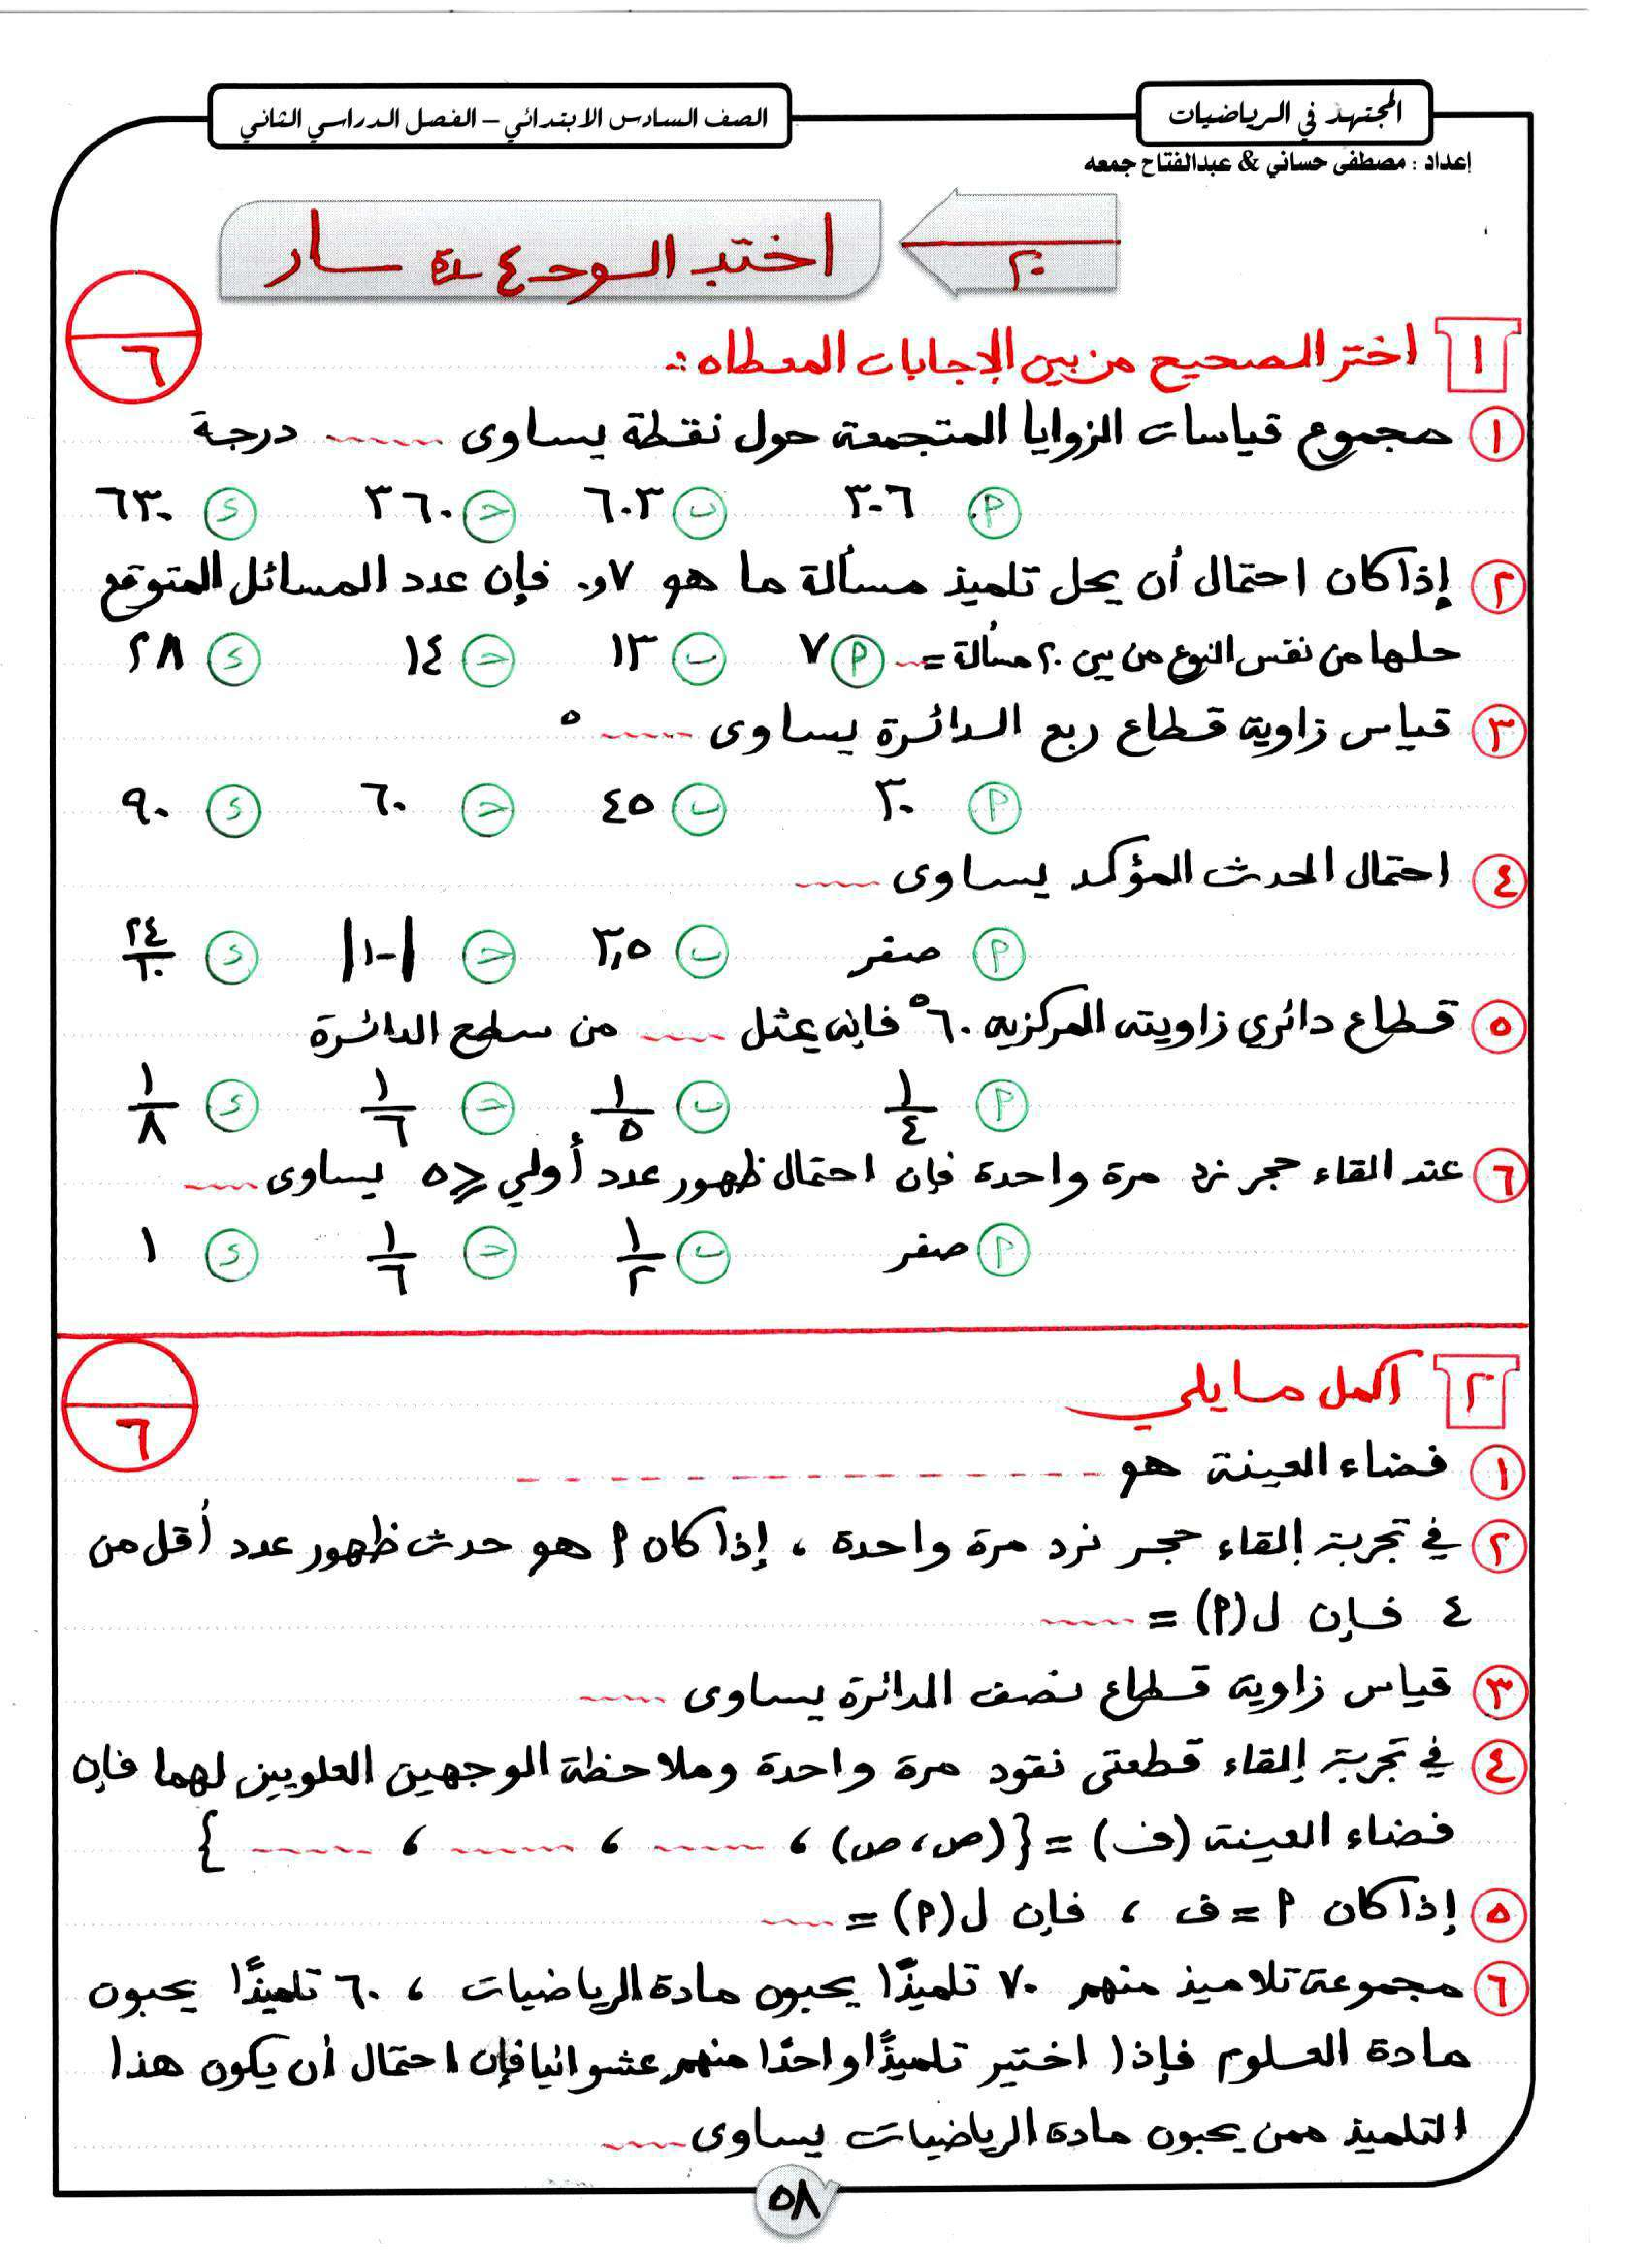 المجتهد في الرياضيات
الصف السادس الابتدائي – الفصل الدراسي الثاني
إعداد : مصطفى حساني & عبدالفتاح جمعه
٢٠
٦
١ اختر الصحيح من بين الإجابات المعطاه :
١ مجموع قياسات الزوايا المتجمعة حول نقطة يساوى ...... درجة
أ ٣٠٦ ب ٦٠٣ ح ٣٦٠ د ٦٣٠
٢ إذا كان احتمال أن يحل تلميذ مسألة ما هو ٠,٧ فإن عدد المسائل المتوقع
حلها من نفس النوع من بين ٢٠ مسألة = ... أ ٧ ب ١٣ ح ١٤ د ٢٨
٣ قياس زاوية قطاع ربع الدائرة يساوى ...... °
أ ٣٠ ب ٤٥ ح ٦٠ د ٩٠
٤ احتمال الحدث المؤكد يساوى ......
أ صفر ب ٣,٥ ح |-١| د ٢٤/٦٠
٥ قطاع دائري زاويته المركزيه ٦٠° فإنه يمثل ...... من سطح الدائرة
أ ١/٤ ب ١/٥ ح ١/٦ د ١/٨
٦ عند القاء حجر نرد مرة واحدة فإن احتمال ظهور عدد أولي ⩾ ٥ يساوى ......
أ صفر ب ١/٢ ح ١/٦ د ١
٦
٢ اكمل ما يلي
١ فضاء العينة هو ............
٢ في تجربة إلقاء حجر نرد مرة واحدة ، إذا كان أ هو حدث ظهور عدد أقل من
٤ فإن ل(أ) = ......
٣ قياس زاوية قطاع نصف الدائرة يساوى ......
٤ في تجربة إلقاء قطعتى نقود مرة واحدة وملاحظة الوجهين العلويين لهما فإن
فضاء العينة (ف) = {(ص ، ص) ، ...... ، ...... ، ...... }
٥ إذا كان أ = ف ، فإن ل(أ) = ......
٦ مجموعة تلاميذ منهم ٧٠ تلميذًا يحبون مادة الرياضيات ، ٦٠ تلميذًا يحبون
مادة العلوم فإذا اختير تلميذًا واحدًا منهم عشوائيا فإن احتمال أن يكون هذا
التلميذ ممن يحبون مادة الرياضيات يساوى ......
٥٨